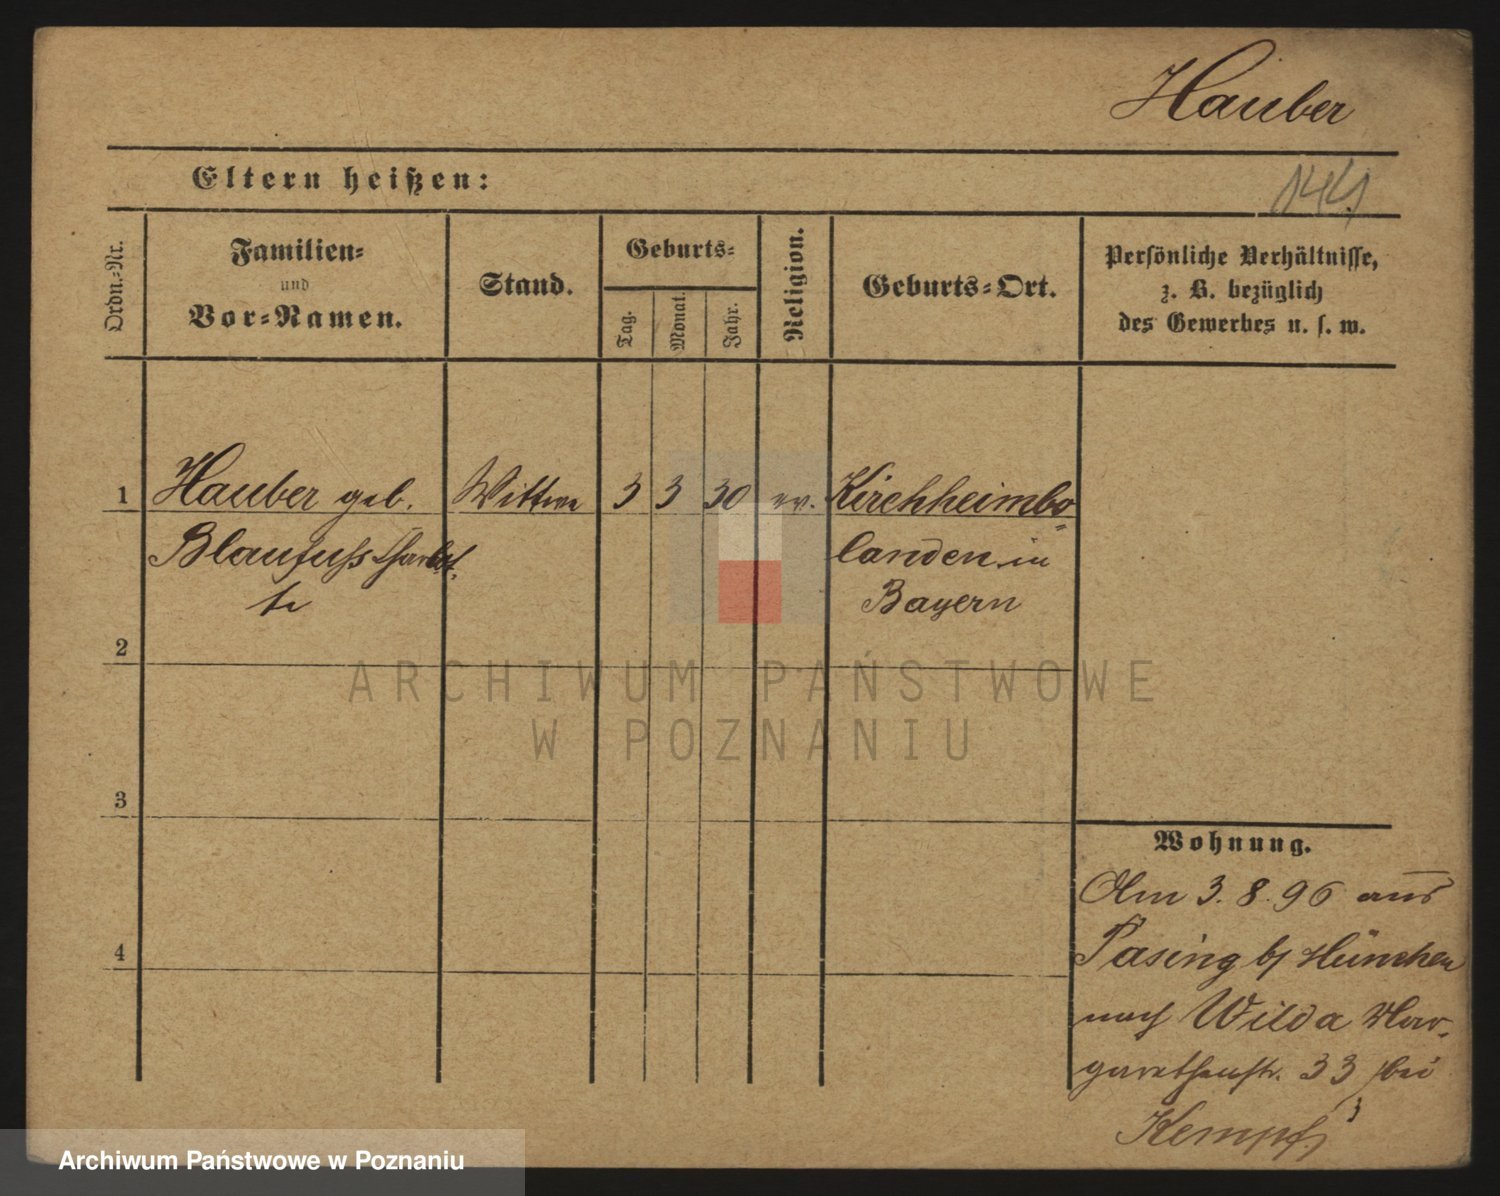 Hauber
Eltern heißen:
141
Ordn.-Nr.
Familien-
und
Vor-Namen.
Stand.
Geburts-
Tag.
Monat.
Jahr.
Religion.
Geburts-Ort.
Persönliche Verhältnisse,
z. B. bezüglich
des Gewerbes u. s. w.
1 Hauber geb. Wittwe 3 3 30 ev. Kirchheimbo-
Blaufuss
landen in
Bayern
2
3
4
ARCHIWUM PAŃSTWOWE
W POZNANIU
Wohnung.
Am 3. 8. 96 aus
Pasing b/ München
nach Wilda Mar-
garethenstr. 33 bei
Kempf
Archiwum Państwowe w Poznaniu